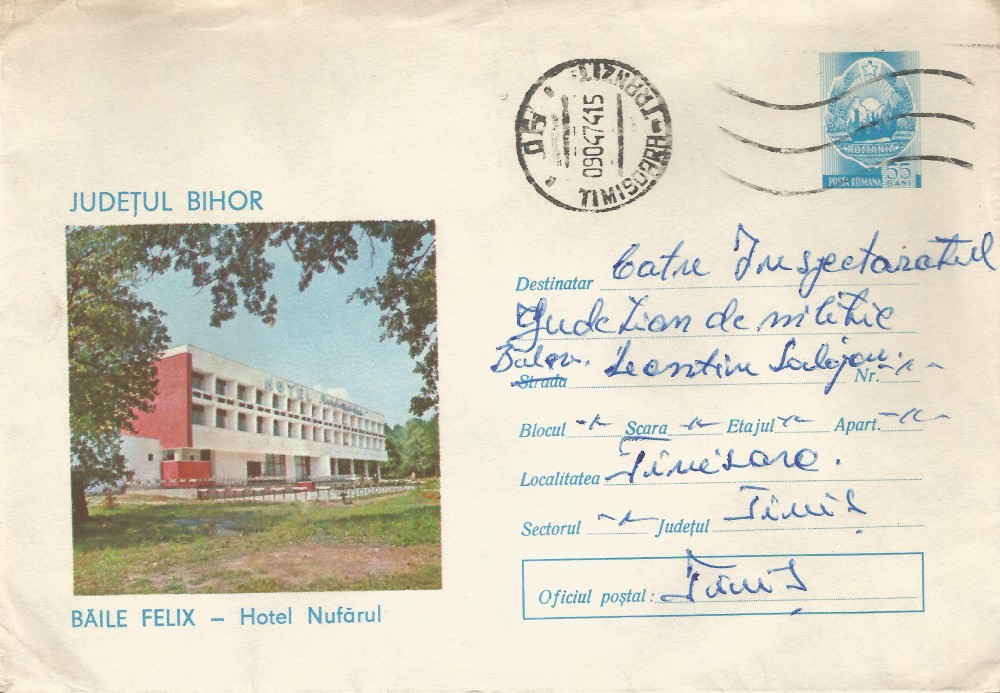 TIMISOARA-TRANZIT
09047415
ROMANIA
POSTA ROMANA 55 BANI
JUDEȚUL BIHOR
HOTEL
Destinatar Catre Inspectoratul
Judetian de militie
Bulev. Leontin Salajan.
Strada Nr.
Blocul Scara Etajul Apart.
Localitatea Timisoara.
Sectorul Județul Timiș
Oficiul poștal: Timiș
BĂILE FELIX – Hotel Nufărul